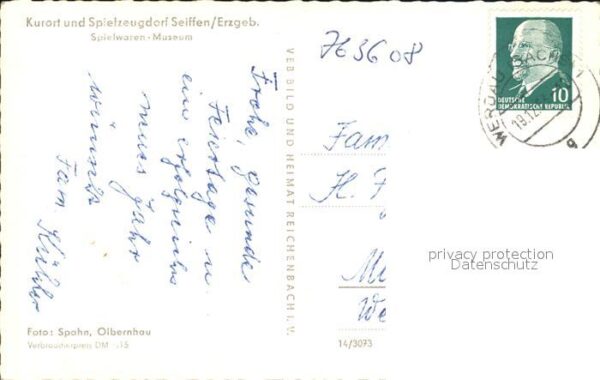 Kurort und Spielzeugdorf Seiffen/Erzgeb.
Spielwaren-Museum
7636 08
Frohe, gesunde
Feiertage u.
ein erfolgreiches
neues Jahr
wünscht
Fam.
VEB BILD UND HEIMAT REICHENBACH I. V.
Fam
H. F
We
10
DEUTSCHE
DEMOKRATISCHE REPUBLIK
WERDAU (SACHS) 1
19.12.
g
privacy protection
Datenschutz
Foto: Spahn, Olbernhau
Verbraucherpreis DM -,15
14/3093